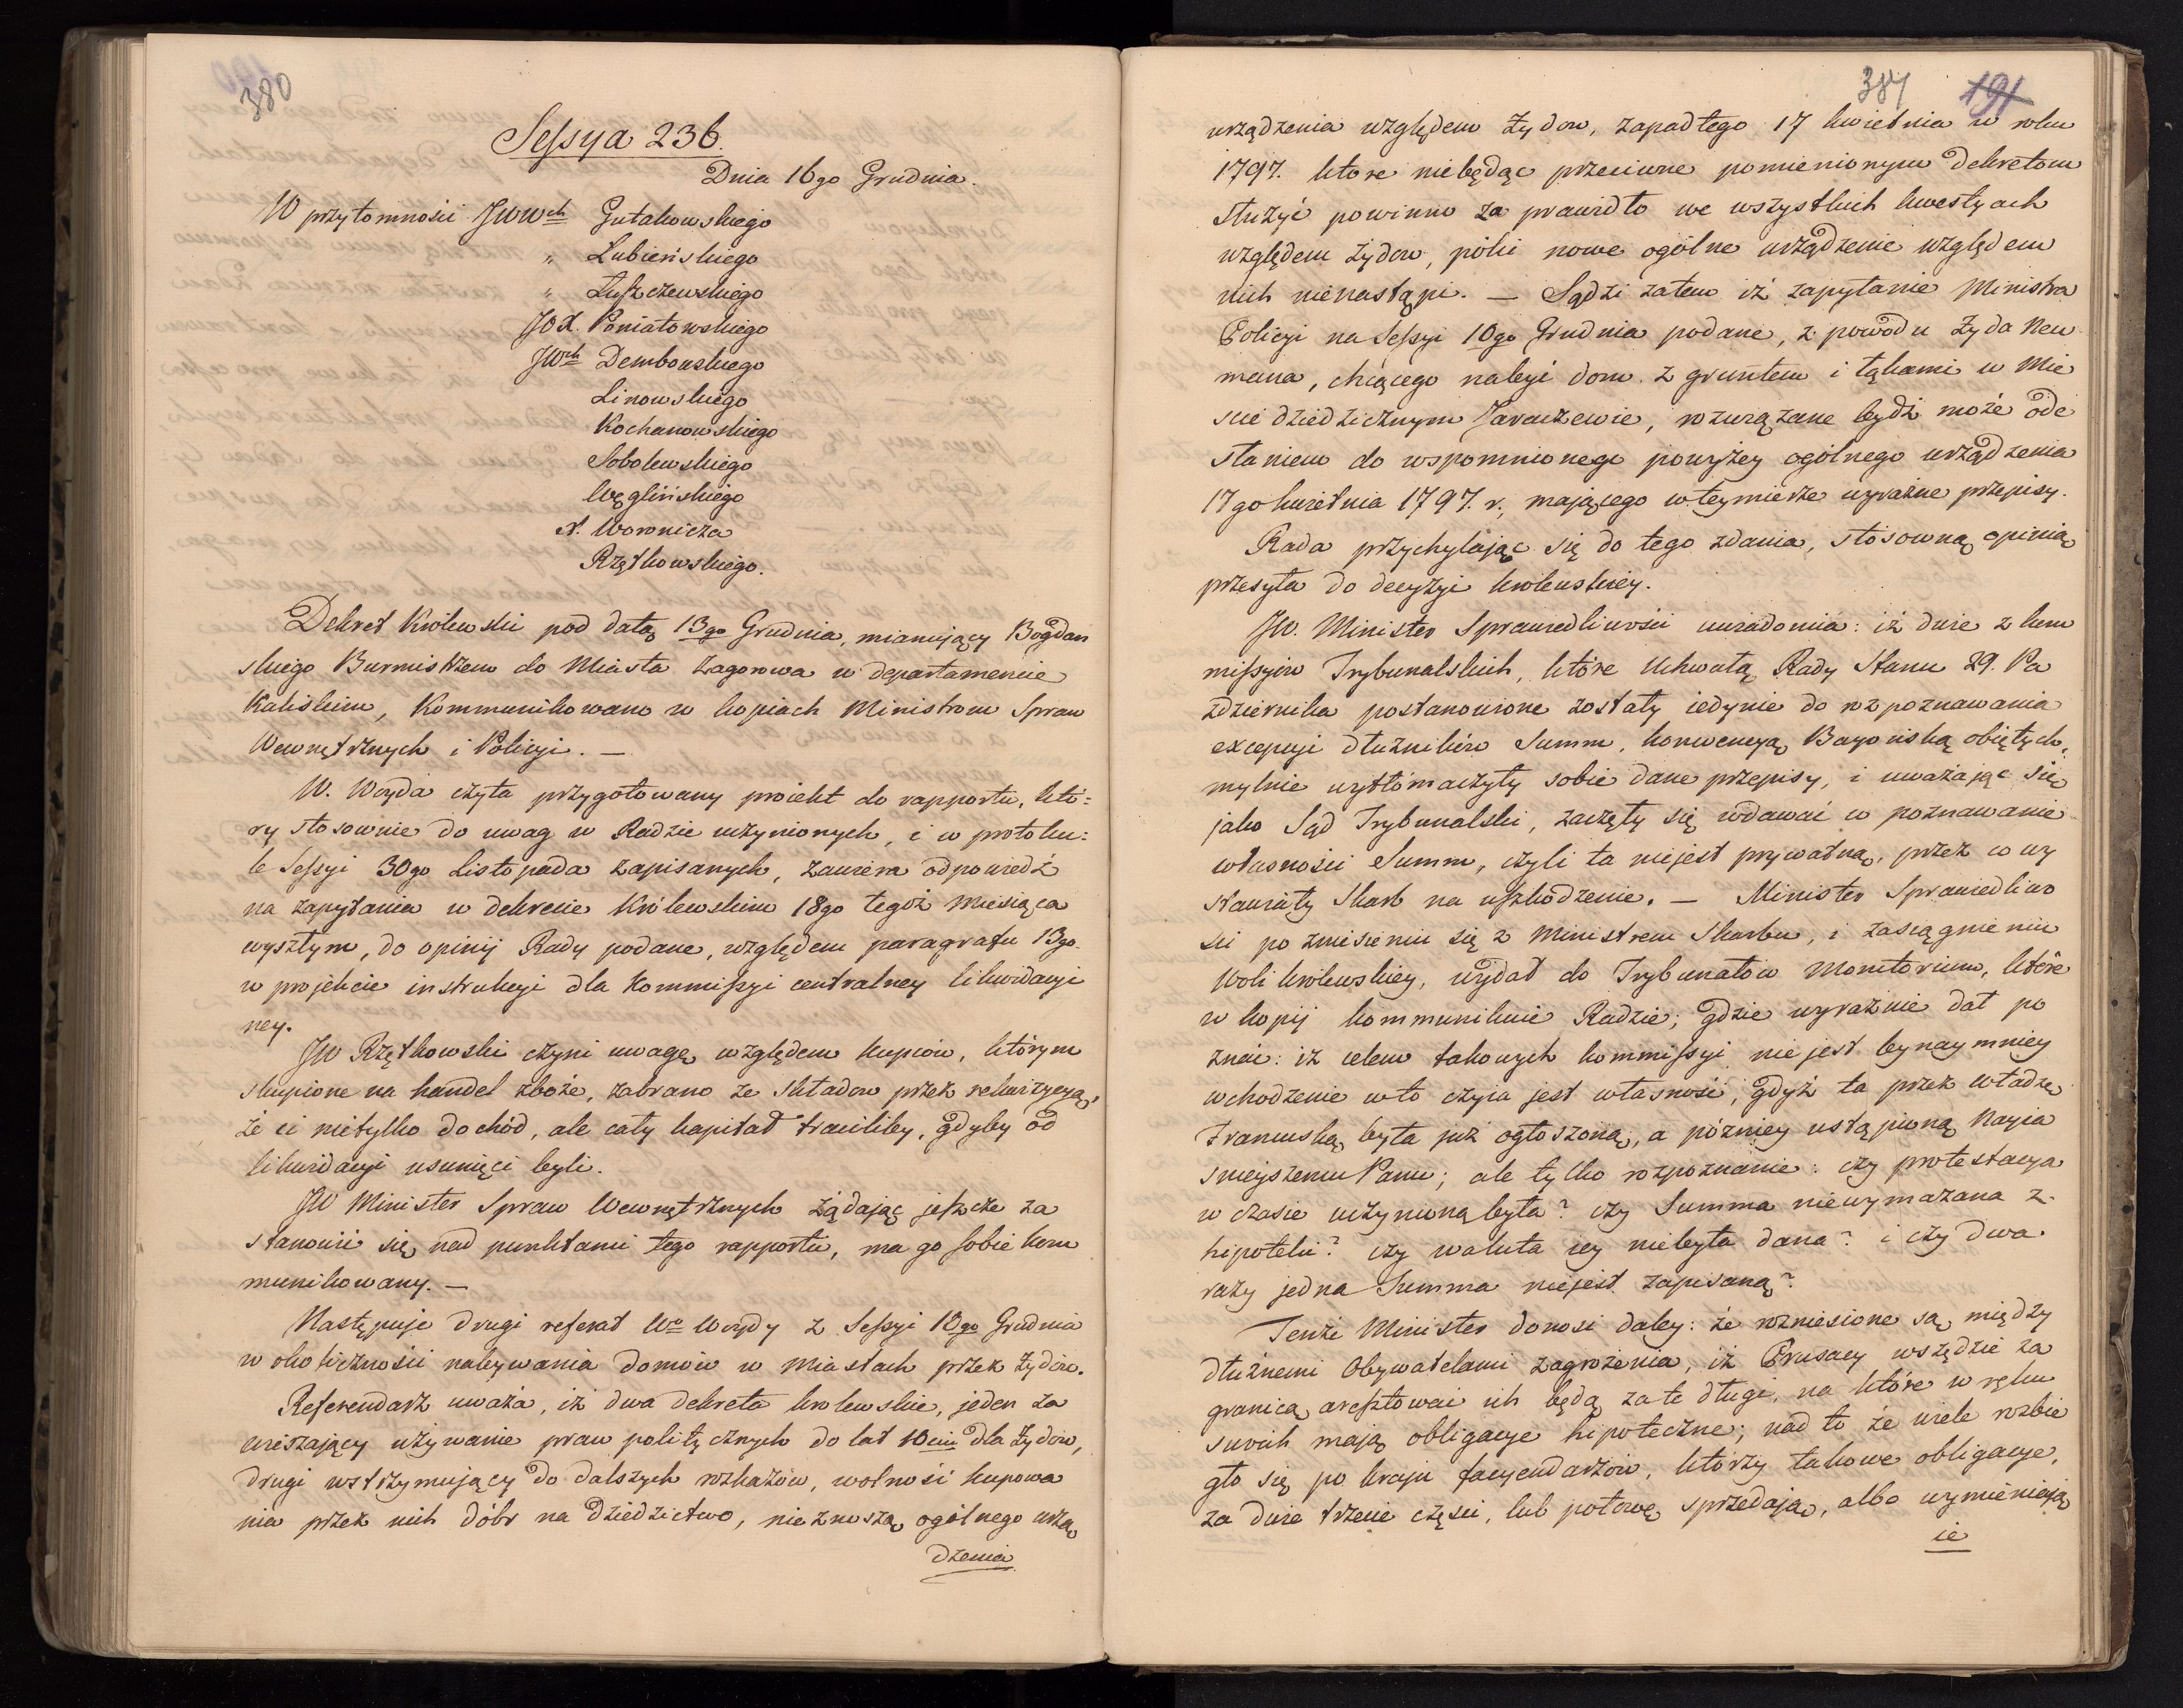 380
Sessya 236.
Dnia 16go Grudnia.
W przytomności JWWch Gutakowskiego
" Łubieńskiego
" Łuszczewskiego
JOX. Poniatowskiego
JWch Dembowskiego
Linowskiego
Kochanowskiego
Sobolewskiego
Węglińskiego
X. Woronicza
Rzętkowskiego.
Dekret Królewski pod datą 13go Grudnia, mianujący Bogdań
skiego Burmistrzem do Miasta Zagorowa w departamencie
Kaliskim, Kommunikowano w kopiach Ministrom Spraw
Wewnętrznych i Policyi. —
W. Woyda czyta przygotowany proiekt do rapportu, któ=
ry stosownie do uwag w Radzie uczynionych, i w protoku=
le Sessyi 30go Listopada zapisanych, zawiera odpowiedź
na zapytania w dekrecie Królewskim 18go tegoż miesiąca
wyszłym, do opinij Rady podane, względem paragrafu 13go
w projekcie instrukcyi dla Kommissyi centralney likwidacyi
ney.
JW Rzętkowski czyni uwagę względem kupców, którym
skupione na handel zboże, zabrano ze składow przez rekwizycyą,
że ci nietylko dochód, ale cały kapitał traciliby, gdyby od
likwidacyi usunięci byli.
JW Minister Spraw Wewnętrznych żądając jeszcze za
stanowić się nad punktami tego rapportu, ma go sobie kom
munikowany. —
Następuje drugi referat We Woydy z Sessyi 10go Grudnia
w okoliczności nabywania domów w miastach przez Żydów.
Referendarz uważa, iż dwa dekreta krolewskie, jeden za
wieszający używanie praw politycznych do lat 10ciu dla Żydów,
drugi wstrzymujący do dalszych rozkazów, wolność kupowa
nia przez nich dóbr na dziedzictwo, nieznoszą ogólnego urzą
dzenia
381 191
urządzenia względem Żydow, zapadłego 17 kwietnia w roku
1797. ktore niebędąc przeciwne pomienionym dekretom
służyć powinno za prawidło we wszystkich kwestyach
względem Żydow, póki nowe ogólne urządzenie względem
nich nienastąpi. — Sądzi zatem iż zapytanie Ministra
Policyi na Sessyi 10go Grudnia podane, z powodu Żyda Neu
mana, chcącego nabyć dom z gruntem i łąkami w Mie
scie dziedzicznym Jaraczewie, rozwiązane bydź może ode
słaniem do wspomnionego powyżey ogólnego urządzenia
17go kwietnia 1797. r., mającego w teymierze wyraźne przepisy.
Rada przychylając się do tego zdania, stósowną opinią
przesyła do decyzyi krolewskiey.
JW. Minister Sprawiedliwości uwiadomia: iż dwie z kom
missyiow Trybunalskich, które Uchwałą Rady Stanu 29. Pa
ździernika postanowione zostały iedynie do rozpoznawania
excepcyi dłużników Summ, konwencyą Bayońską obiętych,
mylnie wytłómaczyły sobie dane przepisy, i uważając się
jako Sąd Trybunalski, zaczęły się wdawać w poznawanie
własności Summ, czyli ta niejest prywatną, przez co wy
stawiały Skarb na uszkodzenie. — Minister Sprawiedliwo
ści po zniesieniu się z Ministrem Skarbu, i zasiągnieniu
Woli krolewskiey, wydał do Trybunałów Monitorium, które
w kopij kommunikuie Radzie; gdzie wyraźnie dał po
znać: iż celem takowych kommissyi nie jest bynaymniey
wchodzenie w to czyia jest własność, gdyż ta przez władzę
Francuską była już ogłoszoną, a pózniey ustąpioną Nayia
snieyszemu Panu; ale tylko rozpoznanie: czy protestacya
w czasie uczynioną była? czy Summa niewymazana z
hipoteki? czy waluta iey niebyła dana? i czy dwa
razy jedna Summa niejest zapisaną?
Tenże Minister donosi daley: że rozniesione są między
dłużnemi Obywatelami zagrożenia, iż Prusacy wszędzie za
granicą aresztować ich będą za te długi, na które w ręku
swoich mają obligacye hipoteczne; nad to że wiele rozbie
gło się po kraju facyendarzów, którzy takowe obligacye,
za dwie trzecie części, lub połowę sprzedają, albo wymieniają
ie